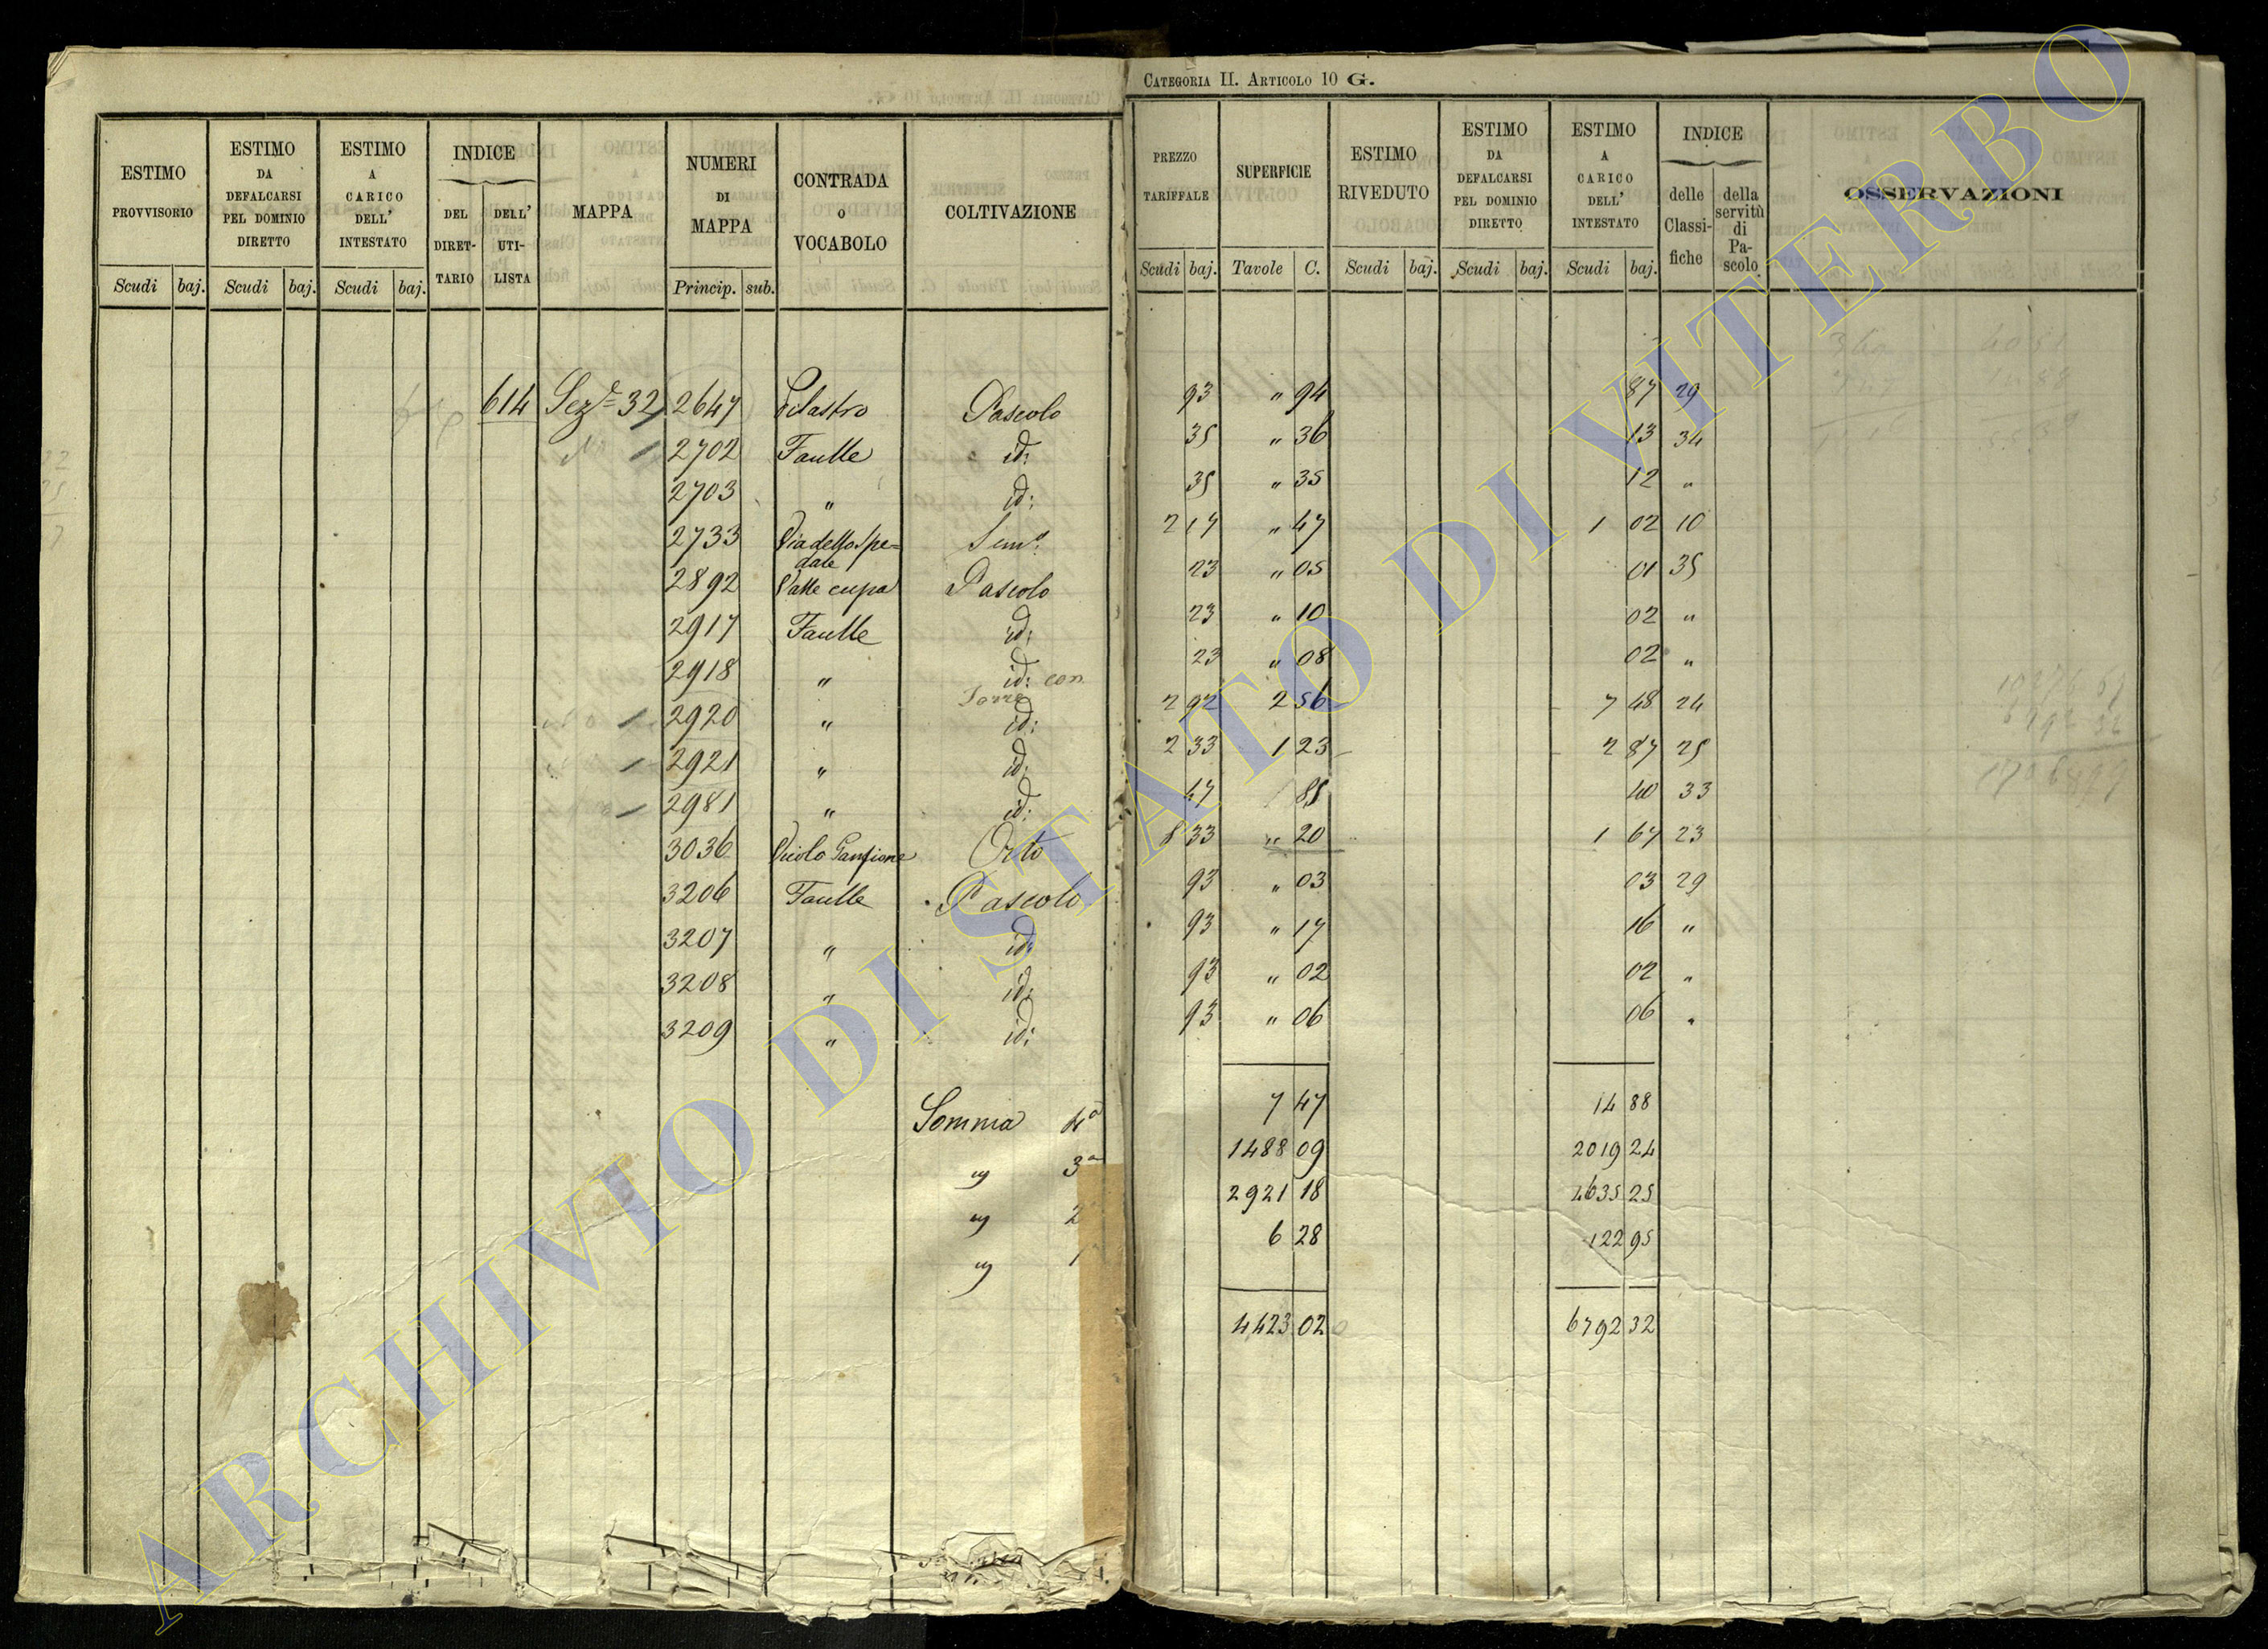 CATEGORIA II. ARTICOLO 10 G.
ESTIMO PROVVISORIO
ESTIMO DA DEFALCARSI PEL DOMINIO DIRETTO
ESTIMO A CARICO DELL' INTESTATO
INDICE
DEL DIRETTARIO
DELL' UTILISTA
MAPPA
NUMERI DI MAPPA
CONTRADA O VOCABOLO
COLTIVAZIONE
PREZZO TARIFFALE
SUPERFICIE
ESTIMO RIVEDUTO
ESTIMO DA DEFALCARSI PEL DOMINIO DIRETTO
ESTIMO A CARICO DELL' INTESTATO
INDICE
delle Classifiche
della servitù di Pascolo
OSSERVAZIONI
Scudi baj. Scudi baj. Scudi baj. Princip. sub. Scudi baj. Tavole C. Scudi baj. Scudi baj. Scudi baj.
614 Sez.e 32 2647 Pilastro Pascolo 93 " 94 87 29
2702 Faulle id: 35 " 36 13 34
2703 " id: 35 " 35 12 "
2733 Via dello Spe=dale Sem.o 2 17 " 47 1 02 10
2892 Valle cupa Pascolo 23 " 05 01 35
2917 Faulle id: 23 " 10 02 "
2918 " id: con 23 " 08 02 "
Torre
2920 " id: 2 92 2 56 7 48 24
2921 " id: 2 33 1 23 2 87 25
2981 " id: 47 85 40 33
3036 Vicolo Orto 8 33 " 20 1 67 23
3206 Faulle Pascolo 93 " 03 03 29
3207 " id: 93 " 17 16 "
3208 " id: 93 " 02 02 "
3209 " id: 93 " 06 06 "
Somma 4a 7 47 14 88
" 3a 1488 09 2019 24
" 2 2921 18 4635 25
" 1 6 28 122 95
4423 02 6792 32
ARCHIVIO DI STATO DI VITERBO